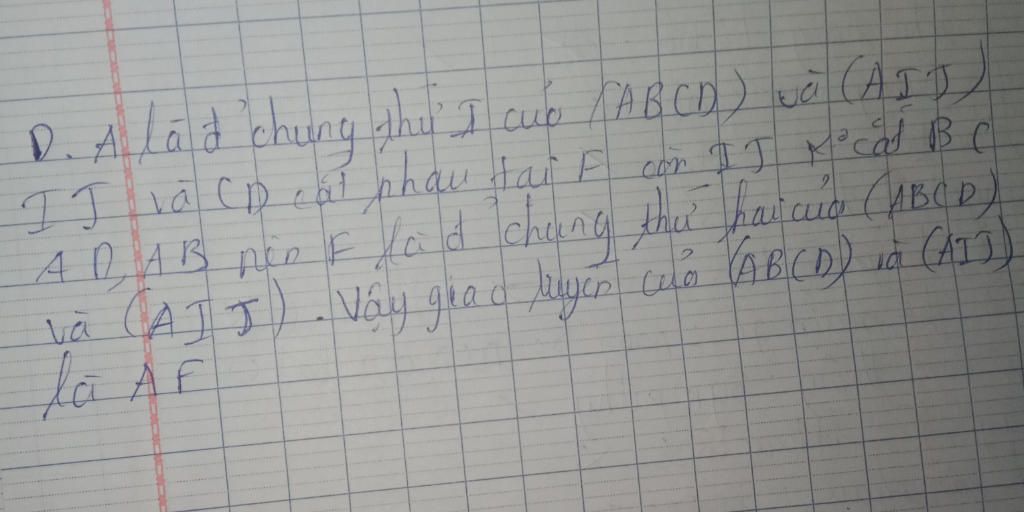 D. A là đ' chung thứ I của (ABCD) và (AIJ)
IJ và CD cắt nhau tại F còn IJ K° cắt BC
AD, AB nên F là đ' chung thứ hai của (ABCD)
và (AIJ). Vậy giao tuyến của (ABCD) và (AIJ)
là AF